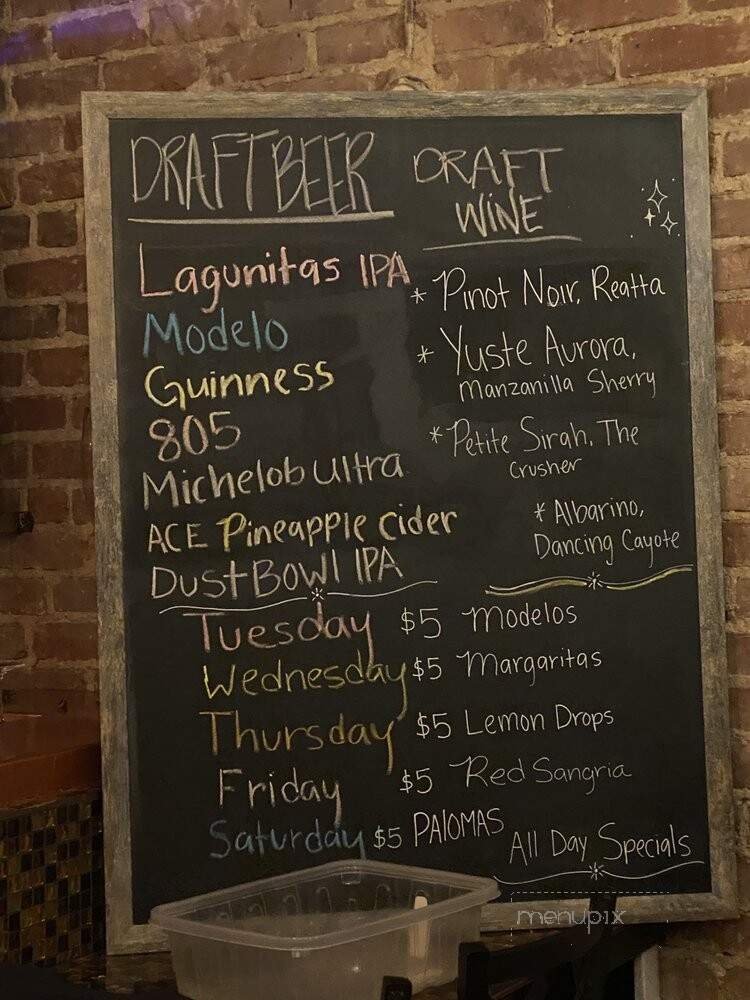 DRAFT BEER
Lagunitas IPA
Modelo
Guinness
805
Michelob Ultra
ACE Pineapple Cider
Dust Bowl IPA
DRAFT
WINE
* Pinot Noir, Reatta
* Yuste Aurora,
Manzanilla Sherry
* Petite Sirah, The
Crusher
* Albarino,
Dancing Cayote
Tuesday $5 Modelos
Wednesday $5 Margaritas
Thursday $5 Lemon Drops
Friday $5 Red Sangria
Saturday $5 PALOMAS
All Day Specials
menupix